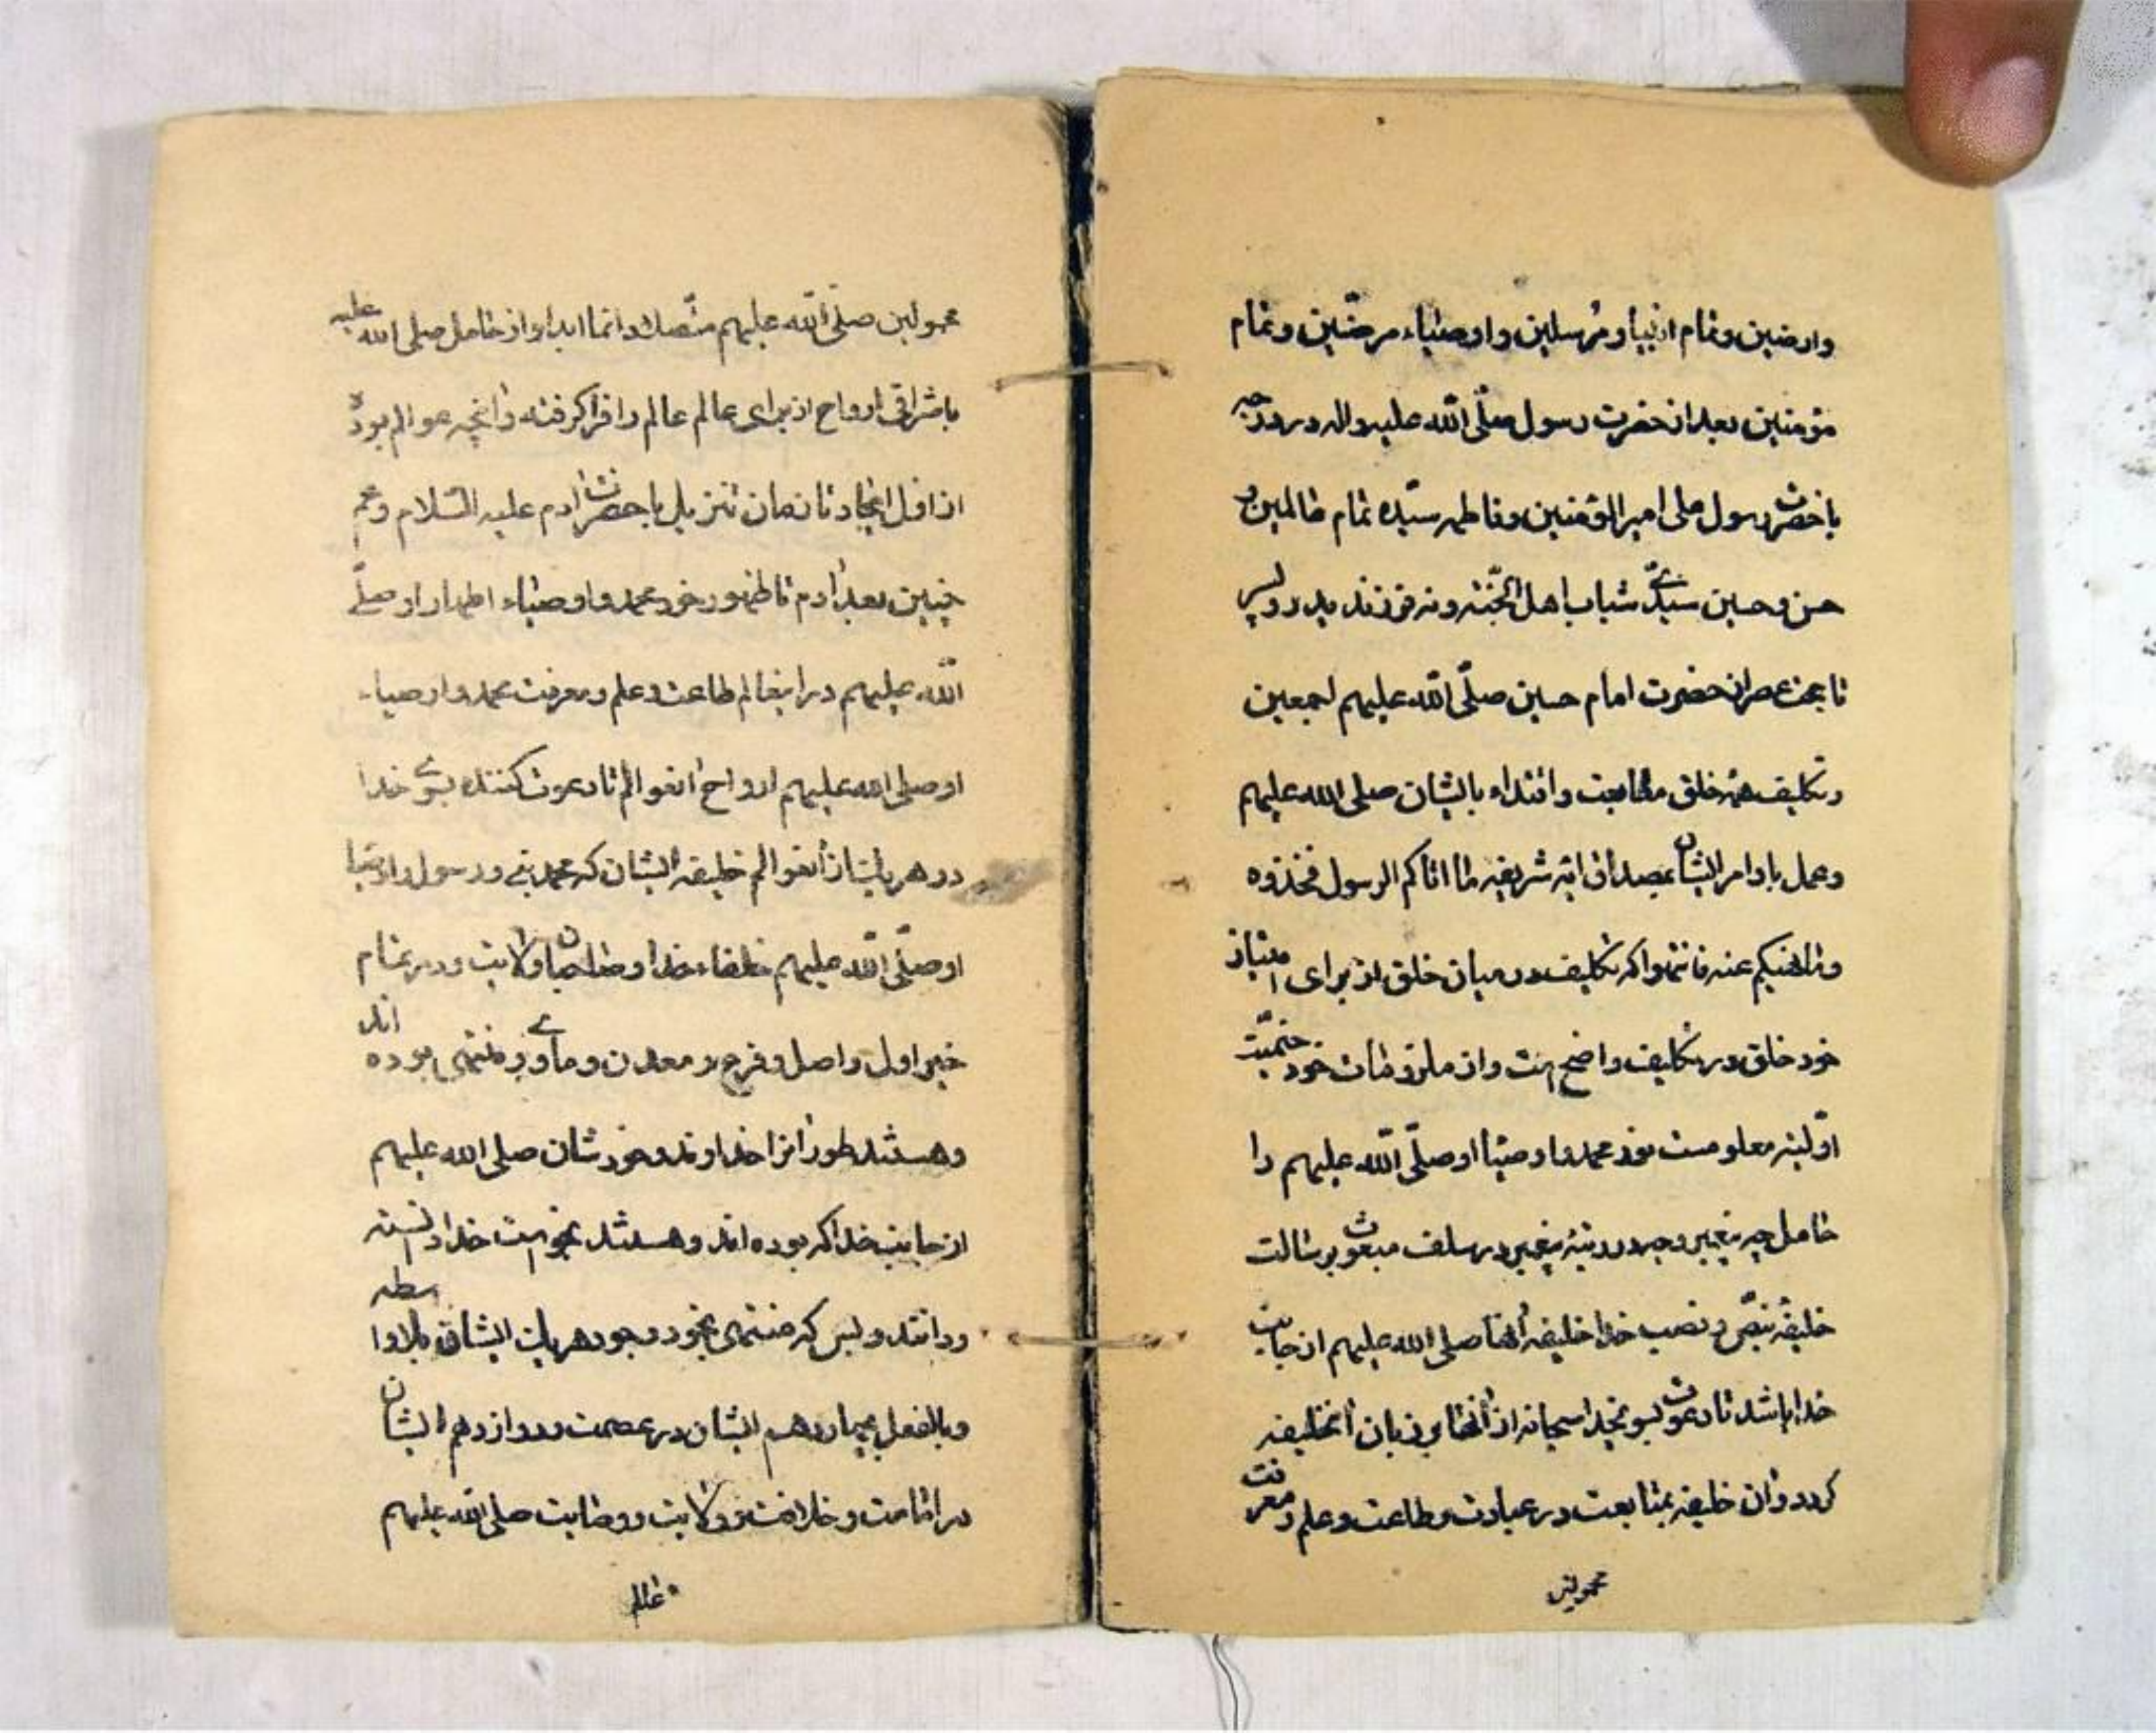 وارضین وتمام انبیا و مرسلین واوصیاء مرضیین وتمام
مؤمنین بعد از حضرت رسول صلّی اللّه علیه واله در درجه
با حضرت رسول علی امیرالمؤمنین وفاطمه سیّده تمام عالمین و
حسن وحسین سیدی شباب اهل الجنّة ونه فرزند پدر و پسر
تا بعد از حضرت امام حسین صلّی اللّه علیهم اجمعین
وتکلیف همه خلق متابعت واقتداء بایشان صلی الله علیهم
وعمل باوامر ایشان بمصداق ایه شریفه ما اتاکم الرسول فخذوه
وما نهیکم عنه فانتهوا که تکلیف در میان خلق از برای امتیاز
خود خلق در تکلیف واضح است واز ملزومات خود ختمیت
اوّلیه معلومست نور محمد و اوصیا او صلّی اللّه علیهم را
حامل چه پیغمبر وچه در رتبه پیغمبر در سلف مبعوث برسالت
خلیفه بنصّ ونصب خدا خلیفه انها صلی الله علیهم از جانب
خدا باشد تا دعوت بسوی خدا سبحانه از انها بر زبان انخلیفه
کردد وان خلیفه بمتابعت در عبادت وطاعت وعلم ومعرفت
محمولین
محمولین صلّی اللّه علیهم متصل ودائما ابدا و از حامل صلی الله علیه
باشراق ارواح از برای عالم عالم را فرا کرفته وانچه عوالم بوده
از اول ایجاد تا زمان تنزیل با حضرت ادم علیه السّلام وهم
چنین بعد ادم تا ظهور خود محمد واوصیاء اطهار او صلّی
اللّه علیهم در اینعالم طاعت وعلم ومعرفت محمد واوصیاء
او صلی الله علیهم ارواح انعوالم تا دعوت کننده بسوی خدا
در هر یک از انعوالم خلیفه ایشان که محمد نبی ورسول واوصیا
او صلّی اللّه علیهم خلفاء خدا وصاحبان ولایت ودر تمام
خیر اول واصل وفرع ومعدن وماوی ومنتهی بوده اند
وهستند طور انرا خداوند وخودشان صلی الله علیهم
از جانب خدا که بوده اند وهستند بخواست خدا دانسته
ودانند وبس که منتهی بخود وجود هر یک ایشان بلاواسطه
وبالفعل بچهاردهم ایشان در عصمت ودوازدهم ایشان
در امامت وخلافت وولایت ووصایت صلی اللّه علیهم
عالم